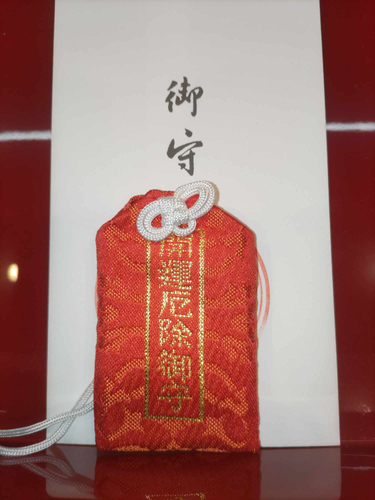 御守
開運厄除御守